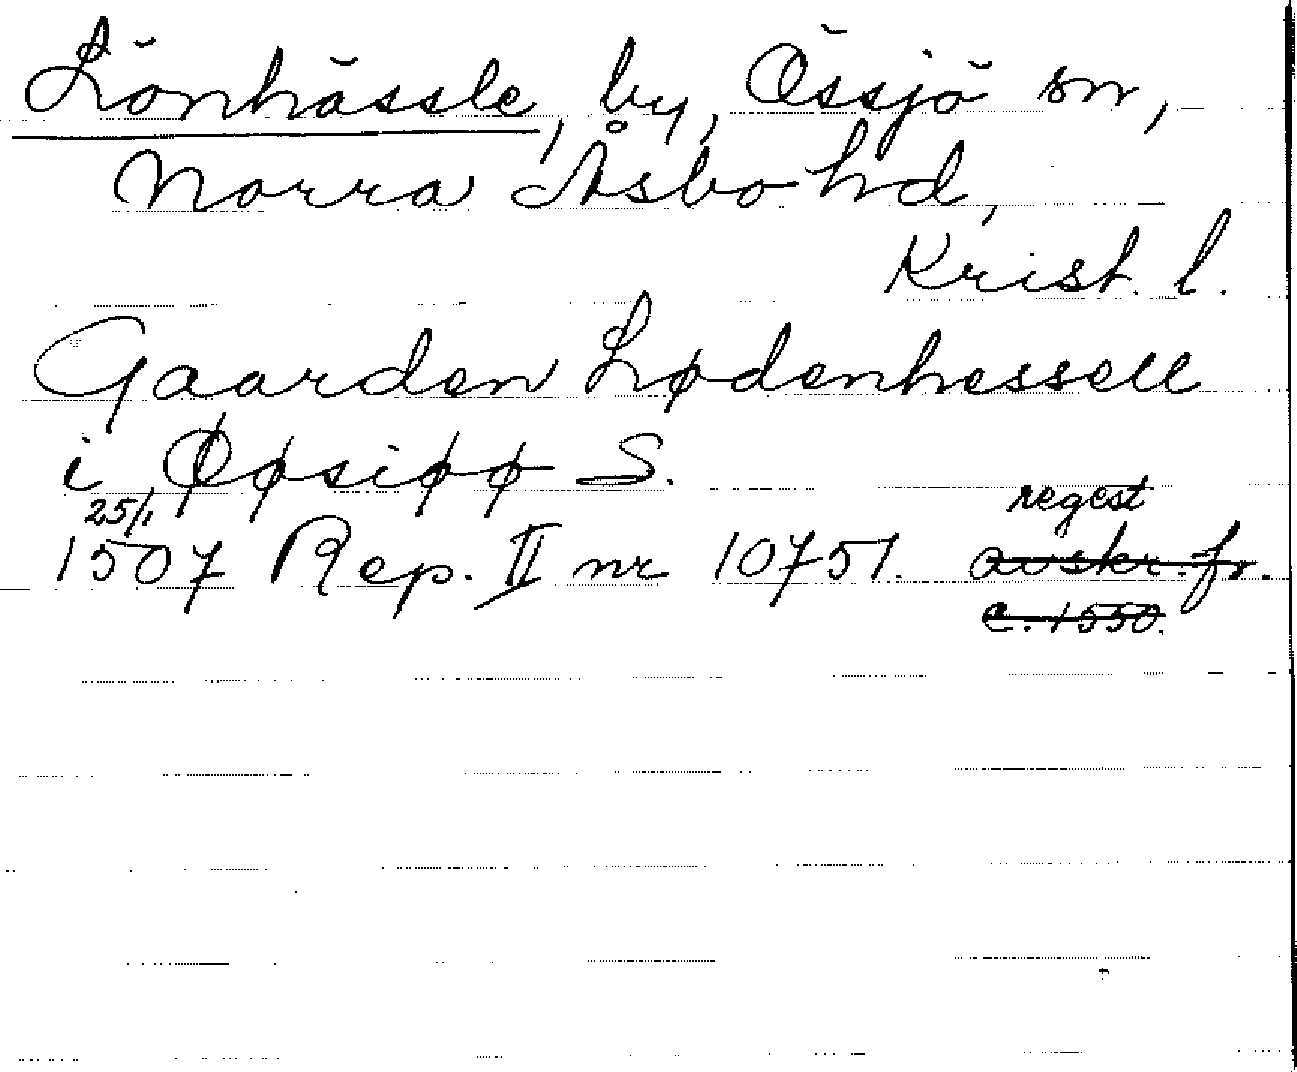 Lönhässle, by, Össjö sn,
Norra Åsbo hd,
Krist. l.
Gaarden Lødenhessell
i Øøsiøø S.
25/1 regest
1507 Rep. II nr 10751. avskr. fr.
c. 1550.